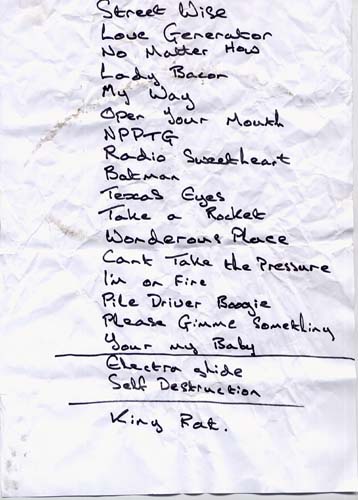 Street Wise
Love Generator
No Matter How
Lady Bacon
My Way
Open Your Mouth
NPPTG
Radio Sweetheart
Batman
Texas Eyes
Take a Rocket
Wonderous Place
Cant Take the Pressure
I'm on Fire
Pile Driver Boogie
Please Gimme Something
Your my Baby
Electra glide
Self Destruction
King Rat.